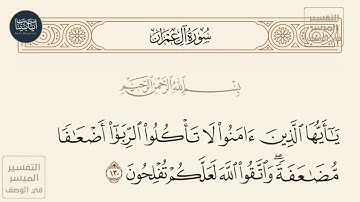 سُورَةُ آلِ عِمۡرَانَ
بِسۡمِ ٱللَّهِ ٱلرَّحۡمَٰنِ ٱلرَّحِيمِ
يَٰٓأَيُّهَا ٱلَّذِينَ ءَامَنُواْ لَا تَأۡكُلُواْ ٱلرِّبَوٰٓاْ أَضۡعَٰفٗا
مُّضَٰعَفَةٗۖ وَٱتَّقُواْ ٱللَّهَ لَعَلَّكُمۡ تُفۡلِحُونَ ١٣٠
التفسير
الميسر
في الوصف